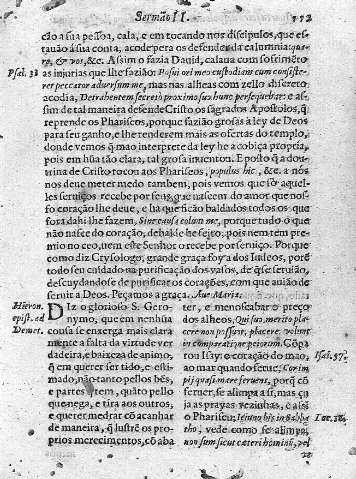 Sermão II.
172
ção a sua pessoa, cala, e em tocando nos discipulos, que estauão
á sua conta, acode pera os defender da calumnia: quare,
& vos, &c. Assim o fazia Dauid, calaua com sofrimẽto
Psal. 38
as injurias que lhe fazião: Posui ori meo custodiam cum consisteret
peccator aduersum me, mas nas alheas com zello discreto
acodia, Detrahentem secretò proximo suo hunc persequebar: e assim
de tal maneira defende Christo os sagrados Apostolos, q̃
reprende os Phariseos, porque fazião grosas à ley de Deos
para seu ganho, e lhe renderem mais as ofertas do templo,
donde vemos q̃ mao interprete da ley he a cobiça propria,
pois em hũa tão clara, tal grosa inuentou. E posto q̃ a doutrina
de Christo tocou aos Phariseos, populus hic, &c. a nós
nos deue meter medo tambem, pois vemos que só aquelles
seruiços recebe por seus, que nascem do amor que nosso
coração lhe deue, e ha que ficão baldados todos os que
fora dahi lhe fazem, Sine causa colunt me, porque tudo o que
não nasce do coração, debalde he fejto, pois nem tem premio
no ceo, nem este Senhor o recebe por seruiço. Porque
como diz Crysologo, grande graça foy a dos Iudeos, porẽ
todo seu cuidado na purificação dos vasos, de q̃ se seruião,
descuydandose de purificar os corações, com que auião de
seruir a Deos. Peçamos a graça. Aue Maria.
Hieron.
epist. ad
Demet.
DIz o glorioso S. Geronymo,
que em nenhũa
cousa se enxerga mais claramente
a falta da virtude verdadeira,
e baixeza de animo,
q̃ em querer ser tido, e estimado,
não tanto pellos bẽs,
e partes q̃ tem, quãto pello
que nega, e tira aos outros,
e querer medrar cõ acanhar
de maneira, q̃ lustrẽ os proprios
merecimentos, cõ abater,
e menoscabar o preço
dos alheos. Qui suo merito placere
non possunt, placere volunt
in comparatione peiorum. Cõparou
Isay: o coração do mao,
Isai. 57.
ao mar quando serue: Cor impij
quasi mare feruens, porq̃ cõ
feruer, se alimpa a si, mas çuja
as prayas vezinhas, e assi
o Phariseu: Ieiuno bis in sabbatho,
Luc. 18.
vede como se alimpa:
non sum sicut cæteri hominũ, vel